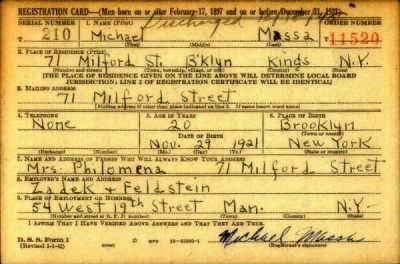 REGISTRATION CARD—(Men born on or after February 17, 1897 and on or before December 31, 1921)
SERIAL NUMBER 1. NAME (Print) ORDER NUMBER
Discharged
T 210 Michael Massa T 11520
(First) (Middle) (Last)
2. PLACE OF RESIDENCE (Print)
71 Milford St. B'klyn Kings N.Y.
(Number and street) (Town, township, village, or city) (County) (State)
[THE PLACE OF RESIDENCE GIVEN ON THE LINE ABOVE WILL DETERMINE LOCAL BOARD
JURISDICTION; LINE 2 OF REGISTRATION CERTIFICATE WILL BE IDENTICAL]
3. MAILING ADDRESS
71 Milford Street
[Mailing address if other than place indicated on line 2. If same insert word same]
4. TELEPHONE 5. AGE IN YEARS 6. PLACE OF BIRTH
None 20 Brooklyn
DATE OF BIRTH (Town or county)
Nov. 29 1921 New York
(Exchange) (Number) (Mo.) (Day) (Yr.) (State or country)
7. NAME AND ADDRESS OF PERSON WHO WILL ALWAYS KNOW YOUR ADDRESS
Mrs. Philomena 71 Milford Street
8. EMPLOYER'S NAME AND ADDRESS
Zadek & Feldstein
9. PLACE OF EMPLOYMENT OR BUSINESS
54 West 19th Street Man. N.Y.
(Number and street or R. F. D. number) (Town) (County) (State)
I AFFIRM THAT I HAVE VERIFIED ABOVE ANSWERS AND THAT THEY ARE TRUE.
D. S. S. Form 1
(Revised 1-1-42) GPO Michael Massa
(Registrant's signature)